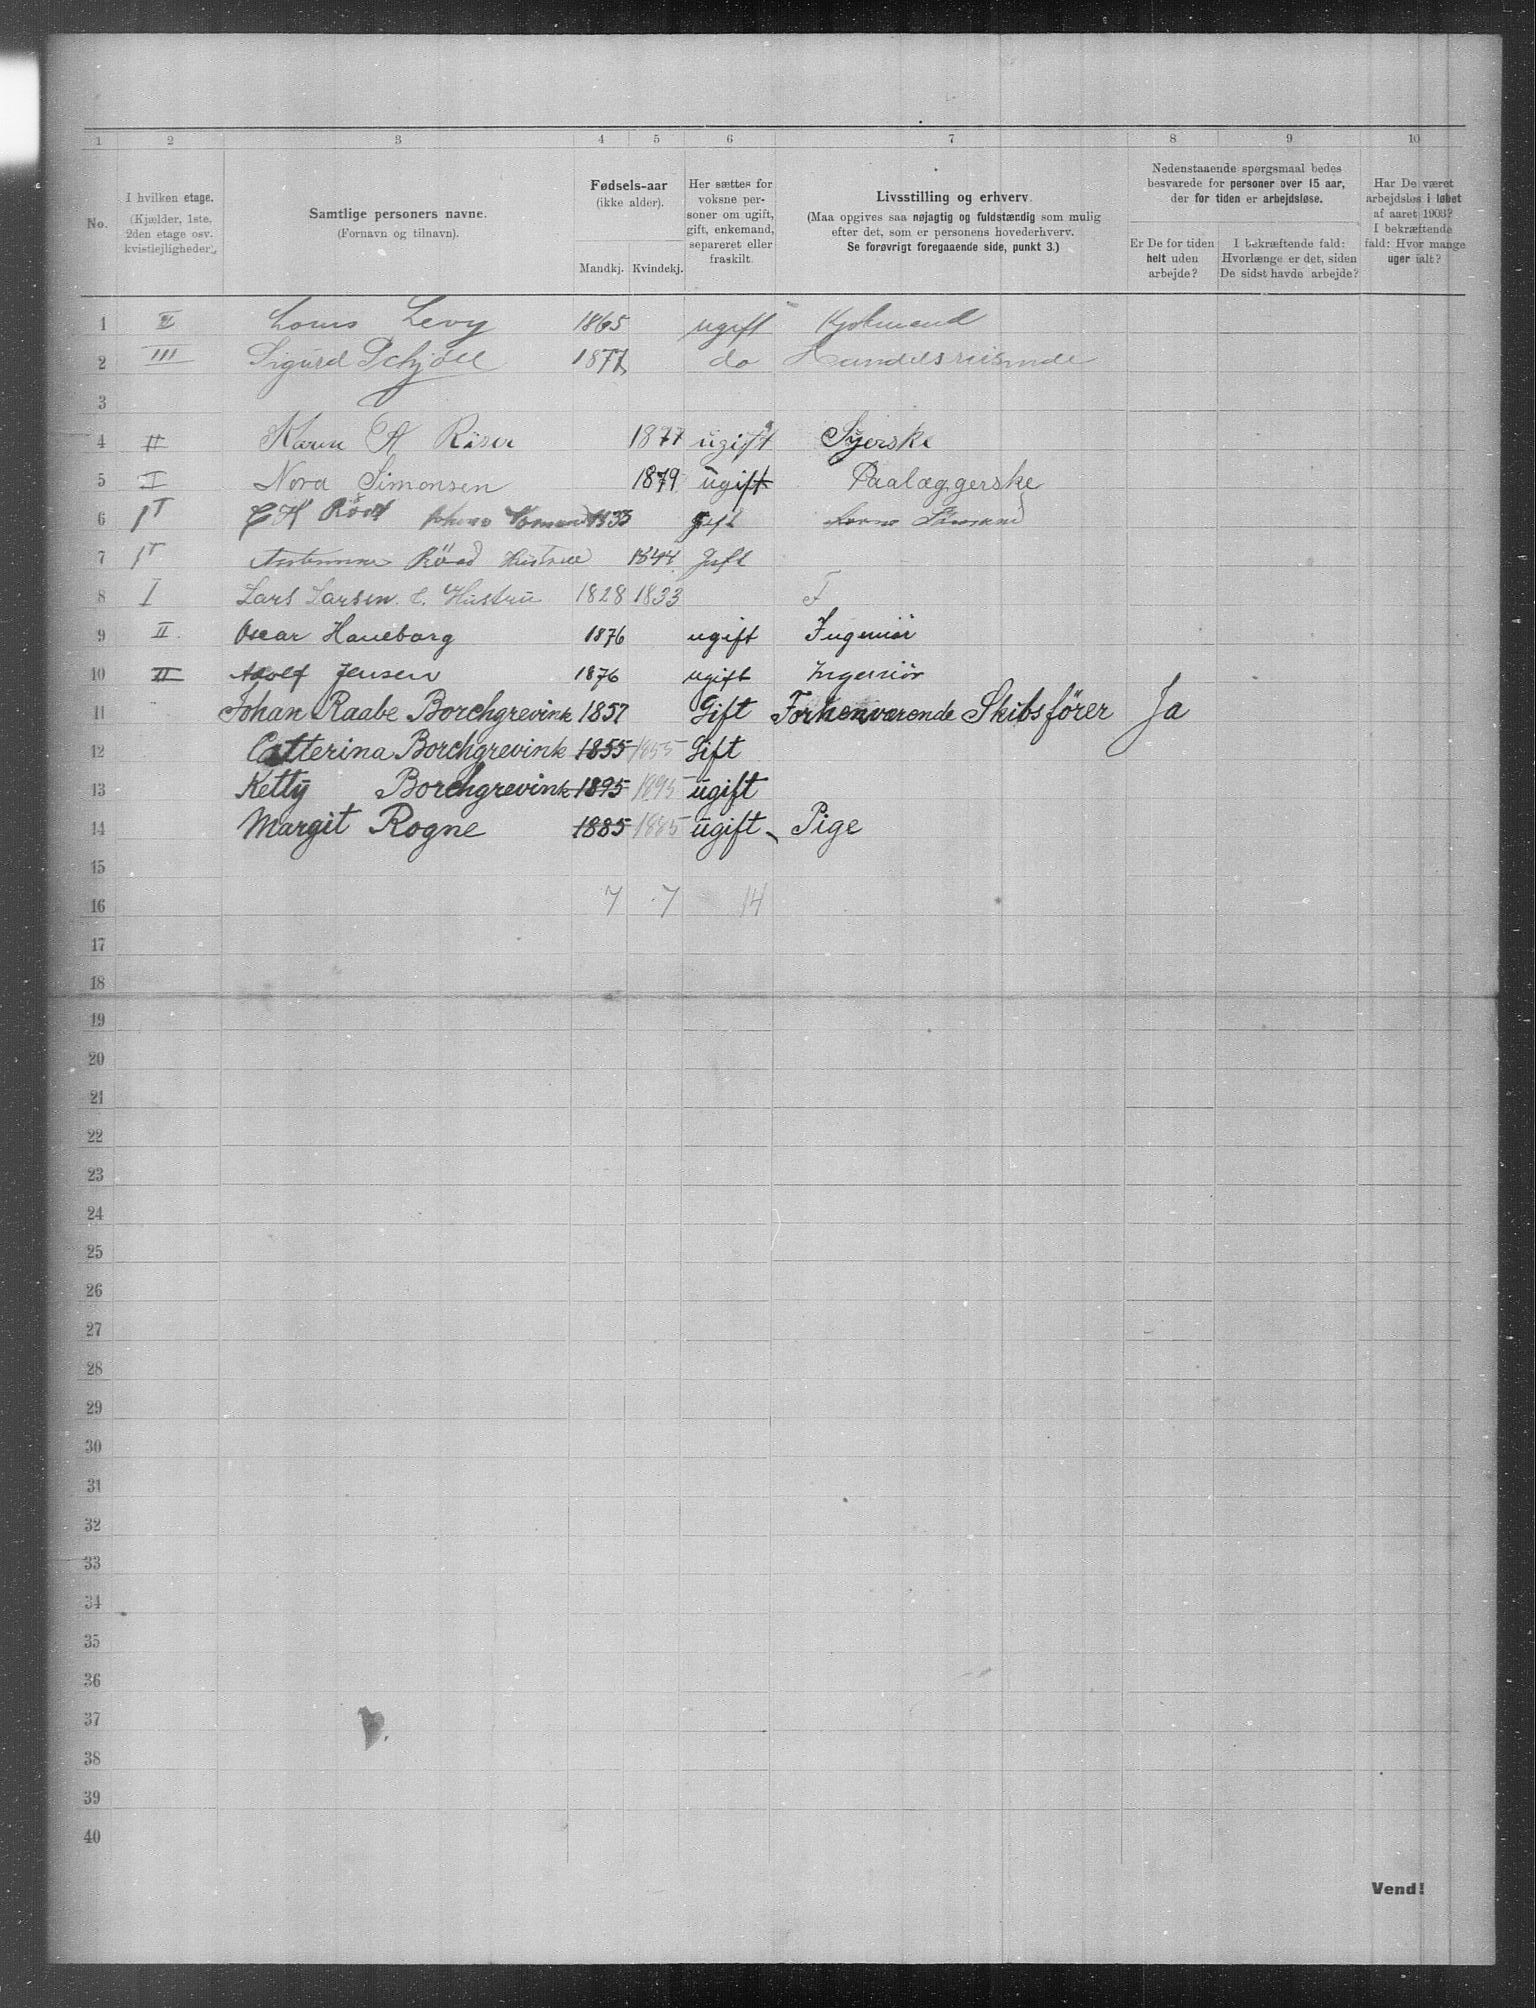 1 2 3 4 5 6 7 8 9 10
No.
I hvilken etage.
(Kjælder, 1ste, 2den etage osv. kvistlejligheder).
Samtlige personers navne.
(Fornavn og tilnavn).
Fødsels-aar
(ikke alder).
Mandkj. Kvindekj.
Her sættes for voksne personer om ugift, gift, enkemand, separeret eller fraskilt.
Livsstilling og erhverv.
(Maa opgives saa nøjagtig og fuldstændig som mulig efter det, som er personens hovederhverv.
Se forøvrigt foregaaende side, punkt 3.)
Nedenstaaende spørgsmaal bedes besvarede for personer over 15 aar, der for tiden er arbejdsløse.
Er De for tiden helt uden arbejde?
I bekræftende fald: Hvorlænge er det, siden De sidst havde arbejde?
Har De været arbejdsløs i løbet af aaret 1903? I bekræftende fald: Hvor mange uger ialt?
1 II Louis Levy 1865 ugift
2 III Sigurd 1877 do Handelsreisende
3
4 II Karen A Riser 1877 ugift Syerske
5 I Nora Simonsen 1879 ugift Paalæggerske
6 1T C H Röed 1833 gift
7 1T Röed Hustrue 1844 Gift
8 I Lars Larsen. & Hustru 1828 1833 F
9 II. Oscar Haneborg 1876 ugift Ingeniör
10 II Adolf Jensen 1876 ugift Ingeniör
11 Johan Raabe Borchgrevink 1857 Gift Forhenværende Skibsförer Ja
12 Catterina Borchgrevink 1855 1855 Gift
13 Ketty Borchgrevink 1895 1895 ugift
14 Margit Rogne 1885 1885 ugift Pige
15
16 7 7 14
17
18
19
20
21
22
23
24
25
26
27
28
29
30
31
32
33
34
35
36
37
38
39
40
Vend!